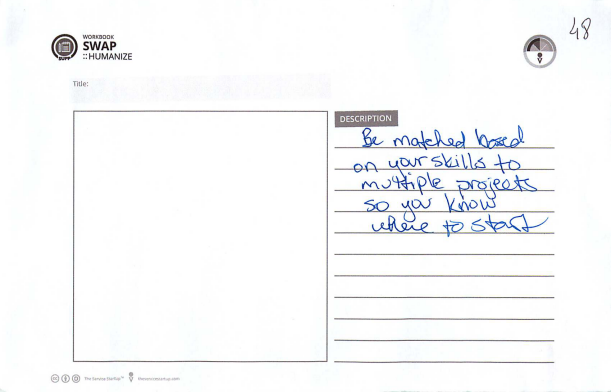 48
WORKBOOK
SWAP
::HUMANIZE
Title:
DESCRIPTION
Be matched based
on your skills to
multiple projects
so you know
where to start
The Service Startup™ theservicestartup.com